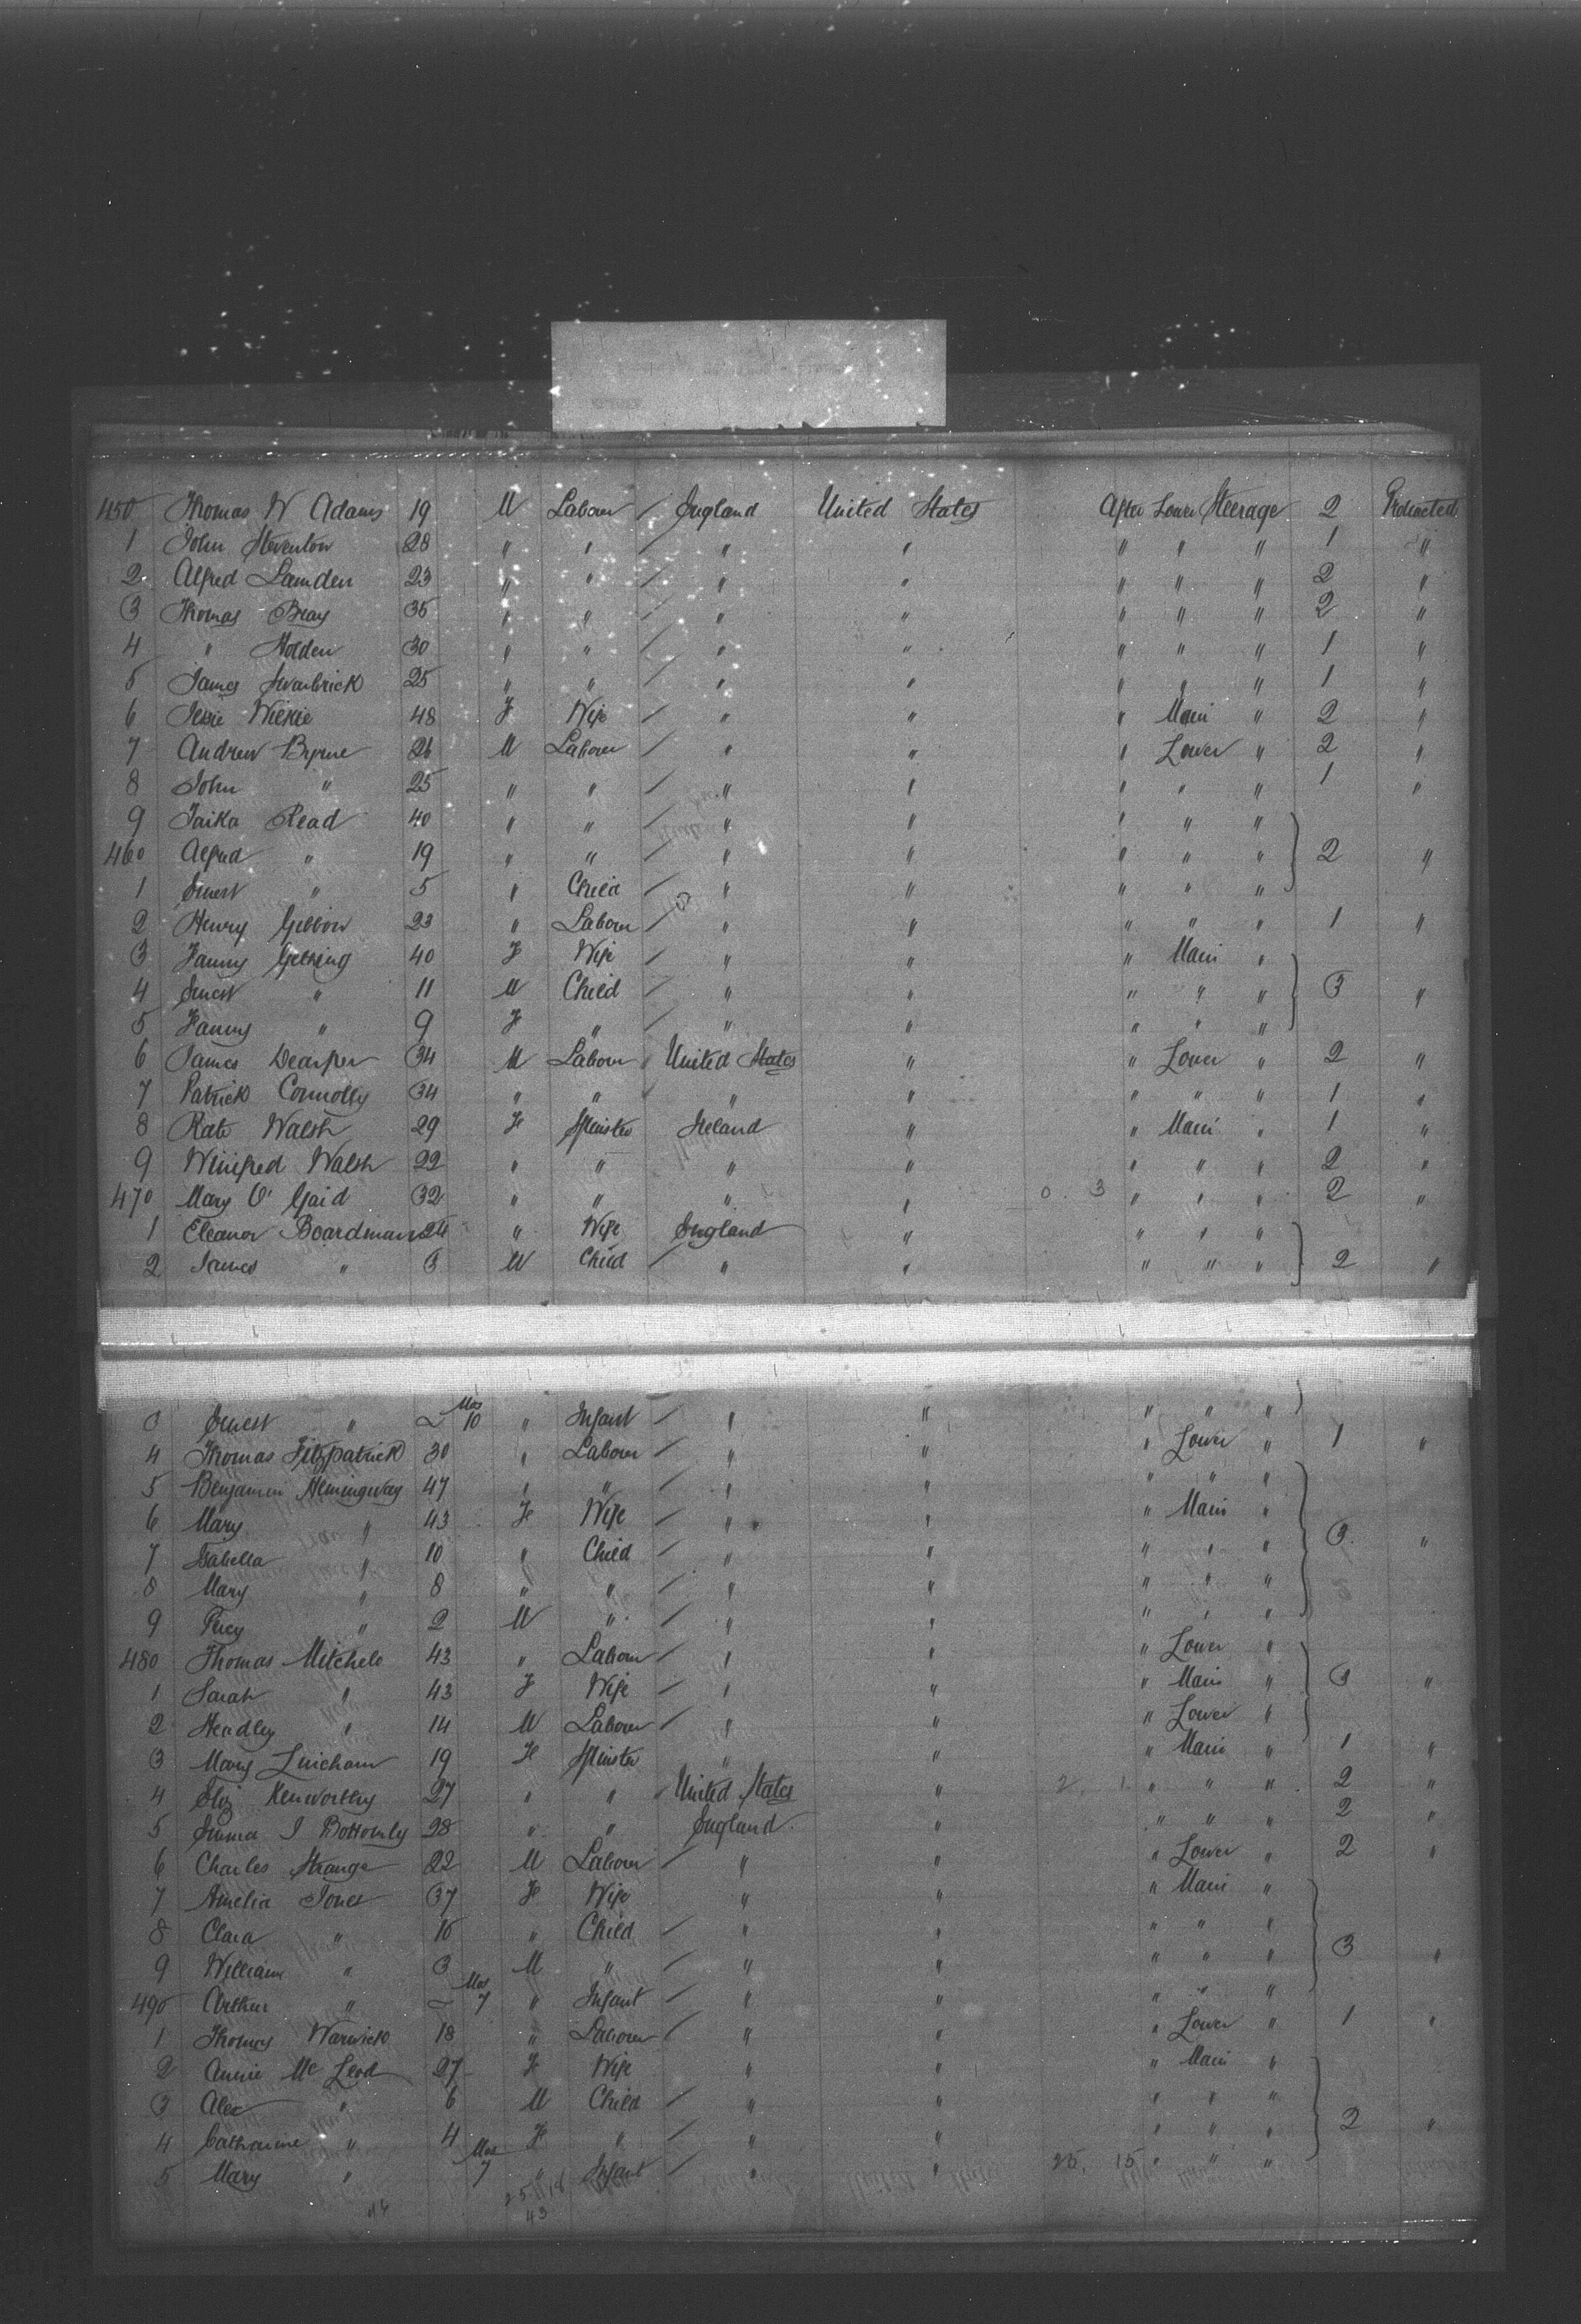 450 Thomas W Adams 19 M Labour / England United States After Lower Steerage 2 Protracted
1 John Steventon 28 " " / " " " " " 1 "
2 Alfred Lamden 23 " " / " " " " " 2 "
3 Thomas Bray 35 " " / " " " " " 2 "
4 " Holden 30 " " / " " " " " 1 "
5 James Swarbrick 25 " " / " " " " " 1 "
6 Jessie Wickie 48 F Wife / " " " Main " 2 "
7 Andrew Byrne 26 M Labour / " " " Lower " 2 "
8 John " 25 " " / " " " " " 1 "
9 Read 40 " " / " " " " "
460 Alfred " 19 " " / " " " " " 2 "
1 Ernest " 5 " Child / " " " " "
2 Henry Gibbon 23 " Labour / " " " " " 1 "
3 Fanny Getting 40 F Wife / " " " Main "
4 Ernest " 11 M Child / " " " " " 3 "
5 Fanny " 9 F " / " " " " "
6 James 34 M Labour United States " " Lower " 2 "
7 Patrick Connolly 34 " " " " " " " 1 "
8 Kate Walsh 29 F Spinster Ireland " " Main " 1 "
9 Winifred Walsh 22 " " " " " " " 2 "
470 Mary O' Gaid 32 " " " " 0. 3 " " " 2 "
1 Eleanor Boardman 24 " Wife England " " " "
2 James " 3 M Child / " " " " " 2 "
3 Ernest " - Mos 10 " Infant / " " " " "
4 Thomas Fitzpatrick 30 " Labour / " " " Lower " 1 "
5 Benjamin Hemingway 47 " " / " " " " "
6 Mary " 43 F Wife / " " " Main "
7 Isabella " 10 " Child / " " " " " 3 "
8 Mary " 8 " " / " " " " "
9 Percy " 2 M " / " " " " "
480 Thomas Mitchele 43 " Labour / " " " Lower "
1 Sarah " 43 F Wife / " " " Main " 3 "
2 Headley " 14 M Labour / " " " Lower "
3 Mary Lincham 19 F Spinster " " " Main " 1 "
4 Eliz Kenworthy 27 " " United States " 2. 1 " " " 2 "
5 Emma J Bottomly 28 " " England " " " " 2 "
6 Charles Strange 22 M Labour / " " " Lower " 2 "
7 Amelia Jones 37 F Wife " " " Main "
8 Clara " " Child / " " " " "
9 William " 3 M " / " " " " " 3 "
490 Arthur " - Mos 7 " Infant / " " " " "
1 Thomas Warwick 18 " Labour / " " " Lower " 1 "
2 Annie Mc Leod 27 F Wife " " " Main "
3 Alec " 6 M Child / " " " " "
4 Catharine " 4 F " / " " " " " 2 "
5 Mary " Mos 7 " Infant / " " 25. 15 " " "
43